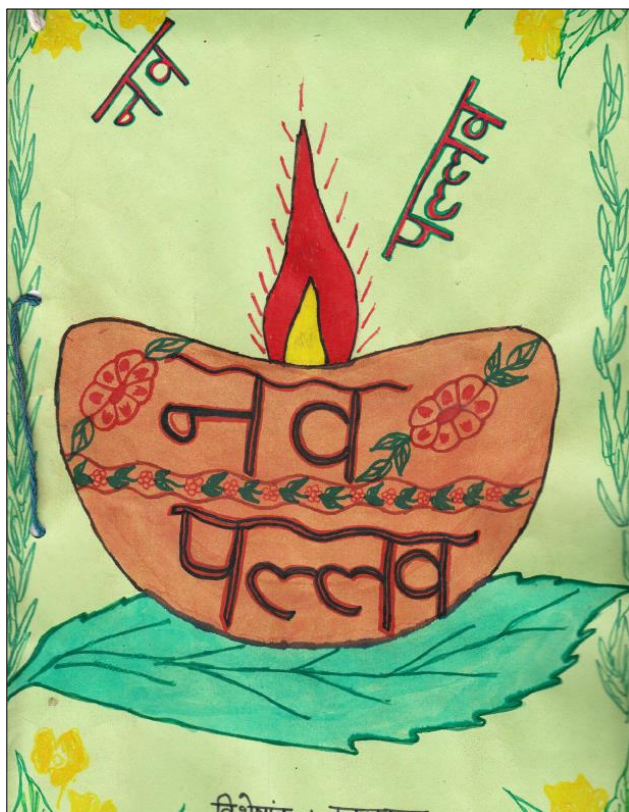 नव
पल्लव
नव
पल्लव
विशेषांक :